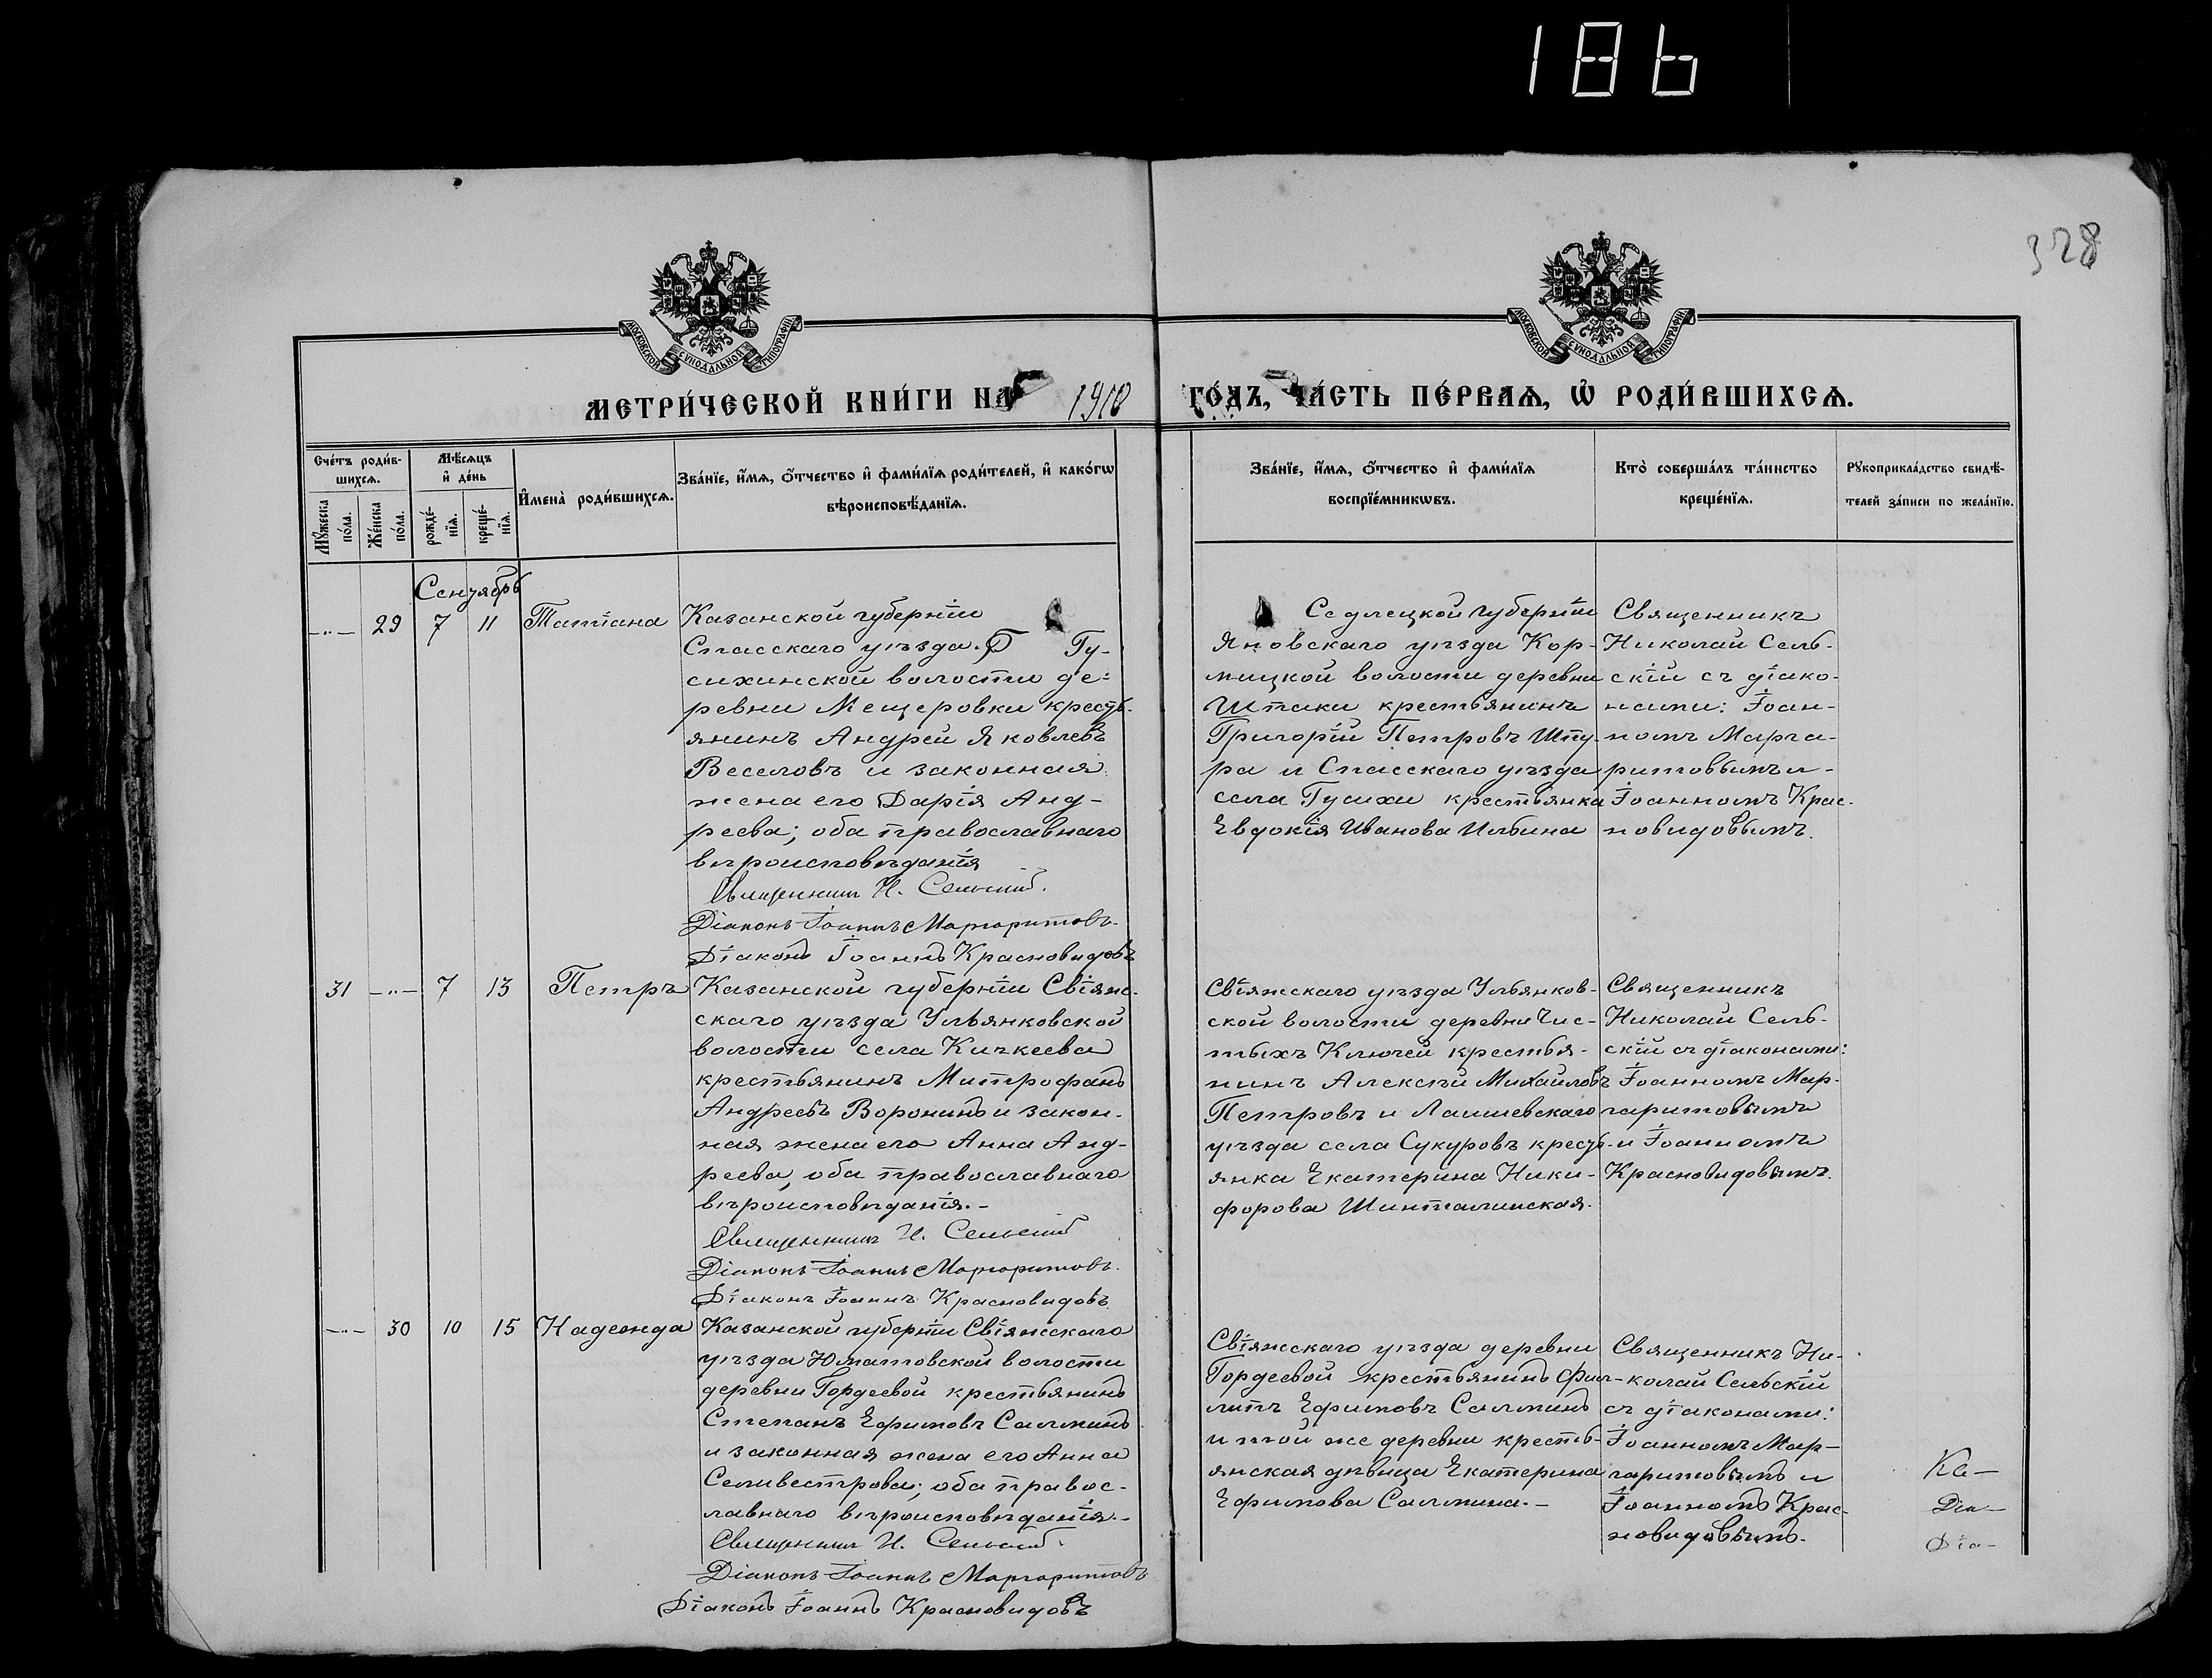 186
328
МОСКОВСКОЙ СУНОДАЛЬНОЙ ТИПОГРАФІИ
МОСКОВСКОЙ СУНОДАЛЬНОЙ ТИПОГРАФІИ
МЕТРИ́ЧЕСКОЙ КНИ́ГИ НА 1910 ГО́ДЪ, ЧА́СТЬ ПЕ́РВАѦ, Ѡ҆ РОДИ́ВШИХСѦ.
Сче́тъ роди́в-
шихсѧ.
Мꙋжеска по́ла.
Же́нска по́ла.
Мѣ́сѧцъ
и҆ де́нь
рожде́-
нїѧ.
креще́-
нїѧ.
И҆мена̀ роди́вшихсѧ.
Зва́нїе, и҆́мѧ, ѻ҆́тчество и҆ фами́лїѧ роди́телей, и҆ како́гѡ
вѣроисповѣ́данїѧ.
Зва́нїе, и҆́мѧ, ѻ҆́тчество и҆ фами́лїѧ
воспрїе́мникѡвъ.
Кто̀ соверша́лъ та́инство
креще́нїѧ.
Рꙋкоприкла́дство свидѣ́-
телей за́писи по жела́нїю.
Сентябрь
-"- 29 7 11 Татіана
Казанской губерніи
Спасскаго уѣзда. Гу-
сихинской волости де-
ревни Мещеровки кресть-
янинъ Андрей Яковлевъ
Веселовъ и законная
жена его Дарія Анд-
реева; оба православнаго
вѣроисповѣданія
Священникъ Н. Сельскій.
Діаконъ Іоаннъ Маргаритовъ.
Діаконъ Іоаннъ Красновидовъ
Седлецкой губерніи
Яновскаго уѣзда Кор-
ницкой волости деревни
Штаки крестьянинъ
Григорій Петровъ Шпу-
ра и Спасскаго уѣзда
села Гусихи крестьянка
Евдокія Иванова Ильина
Священникъ
Николай Сель-
скій съ діако-
нами: Іоан-
номъ Марга-
ритовымъ и
Іоанномъ Крас-
новидовымъ.
31 -"- 7 13 Петръ
Казанской губерніи Свіяж-
скаго уѣзда Ульянковской
волости села Кичкеева
крестьянинъ Митрофанъ
Андреевъ Воронинъ и закон-
ная жена его Анна Анд-
реева, оба православнаго
вѣроисповѣданія.-
Священникъ Н. Сельскій
Діаконъ Іоаннъ Маргаритовъ.
Діаконъ Іоаннъ Красновидовъ
Свіяжскаго уѣзда Ульянков-
ской волости деревни Чис-
тыхъ Ключей крестья-
нинъ Алексѣй Михайловъ
Петровъ и Лаишевскаго
уѣзда села Сукуровъ кресть-
янка Екатерина Ники-
форова Шинталинская.
Священникъ
Николай Сель-
скій съ діаконами:
Іоанномъ Мар-
гаритовымъ
и Іоанномъ
Красновидовымъ.
-"- 30 10 15 Надежда
Казанской губерніи Свіяжскаго
уѣзда Юматовской волости
деревни Гордеевой крестьянинъ
Степанъ Ефимовъ Салминъ
и законная жена его Анна
Селивестрова; оба правос-
лавнаго вѣроисповѣданія.-
Священникъ Н. Сельскій.
Діаконъ Іоаннъ Маргаритовъ
Діаконъ Іоаннъ Красновидовъ
Свіяжскаго уѣзда деревни
Гордеевой крестьянинъ Фил-
липъ Ефимовъ Салминъ
и той же деревни кресть-
янская дѣвица Екатерина
Ефимова Салмина.-
Священникъ Ни-
колай Сельскій
съ діаконами:
Іоанномъ Мар-
гаритовымъ и
Іоанномъ Крас-
новидовымъ.
Ка-
Діа-
Діа-